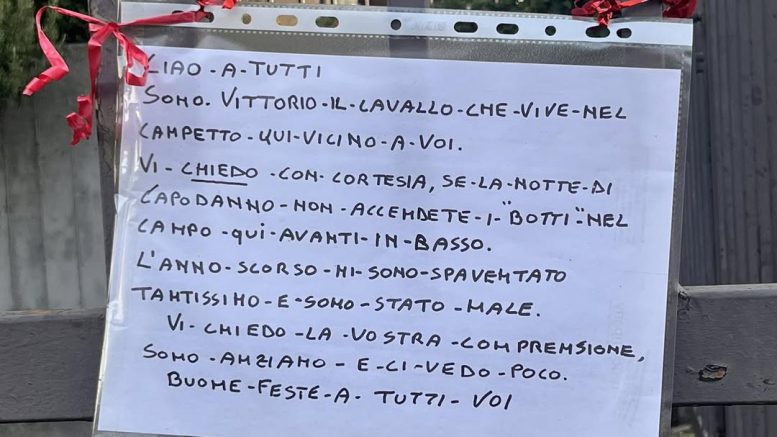 CIAO-A-TUTTI
SONO. VITTORIO-IL-CAVALLO-CHE-VIVE-NEL
CAMPETTO-QUI-VICINO-A-VOI.
VI-CHIEDO-CON-CORTESIA, SE-LA-NOTTE-DI
CAPODANNO-NON-ACCENDETE-I-"BOTTI"-NEL
CAMPO-QUI-AVANTI-IN-BASSO.
L'ANNO-SCORSO-MI-SONO-SPAVENTATO
TANTISSIMO-E-SONO-STATO-MALE.
VI-CHIEDO-LA-VOSTRA-COMPRENSIONE,
SONO-ANZIANO-E-CI-VEDO-POCO.
BUONE-FESTE-A-TUTTI-VOI